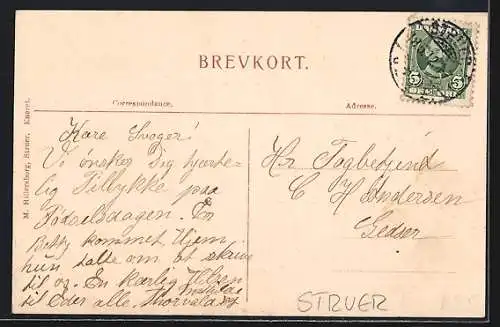 BREVKORT.
Correspondance.
Adresse.
M. Hillersborg, Struer. Eneret.
5 5
Kære Svoger!
Vi ønsker Dig hjærte-
lig Tillykke paa
Fødselsdagen. Er
Betty kommet Hjem
hun talte om at skrive
til os. En kærlig Hilsen
til Eder alle Thorvald og
Hr Togbetjent
C H Andersen
Gedser
STRUER